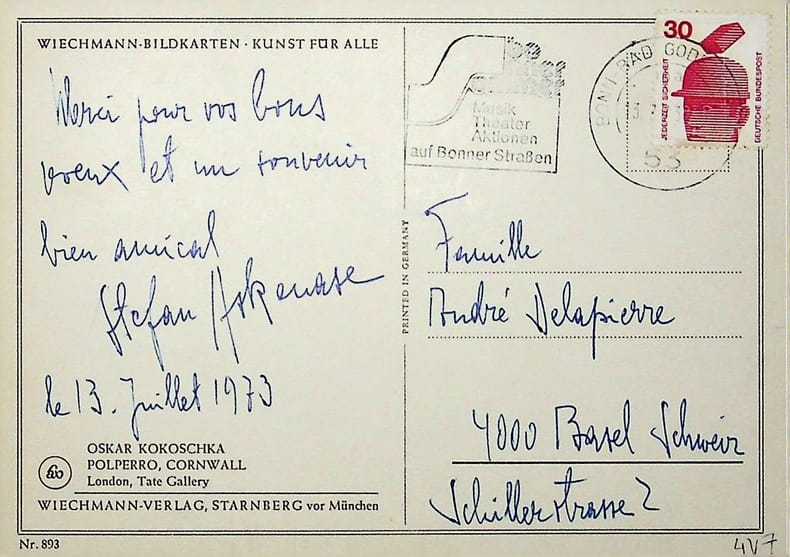 WIECHMANN-BILDKARTEN · KUNST FÜR ALLE
Merci pour vos bons
voeux et un souvenir
bien amical
Stefan Askenase
le 13. Juillet 1973
OSKAR KOKOSCHKA
POLPERRO, CORNWALL
London, Tate Gallery
WIECHMANN-VERLAG, STARNBERG vor München
Nr. 893
PRINTED IN GERMANY
Musik
Theater
Aktionen
auf Bonner Straßen
BONN-BAD GOD
53
30
JEDERZEIT SICHERHEIT
DEUTSCHE BUNDESPOST
Famille
André Delapierre
4000 Basel Schweiz
Schillerstrasse 2